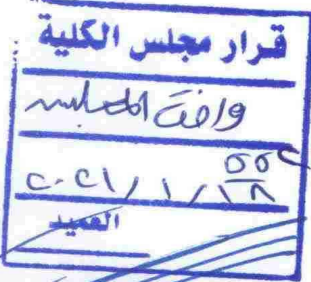 قرار مجلس الكلية
وافق المجلس
٢٠٢١/١/١٨
العميد